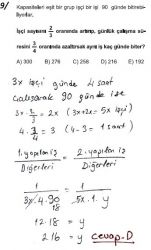 9/
Kapasiteleri eşit bir grup işçi bir işi 90 günde bitirebi-
liyorlar.
İşçi sayısını 2/3 oranında artırıp, günlük çalışma sü-
resini 3/4 oranında azaltırsak aynı iş kaç günde biter?
A) 300 B) 276 C) 258 D) 216 E) 192
3x işçi günde 4 saat
çalışarak 90 günde ise
3x · 2/3 = 2x (3x+2x = 5x işçi)
4 · 3/4 = 3 (4-3 = 1 saat)
1. yapılan iş / Diğerleri = 2. yapılan iş / Diğerleri
1 / 3x · 4 · 90 = 1 / 5x · 1 · y
18
12 · 18 = y
216 = y cevap. D